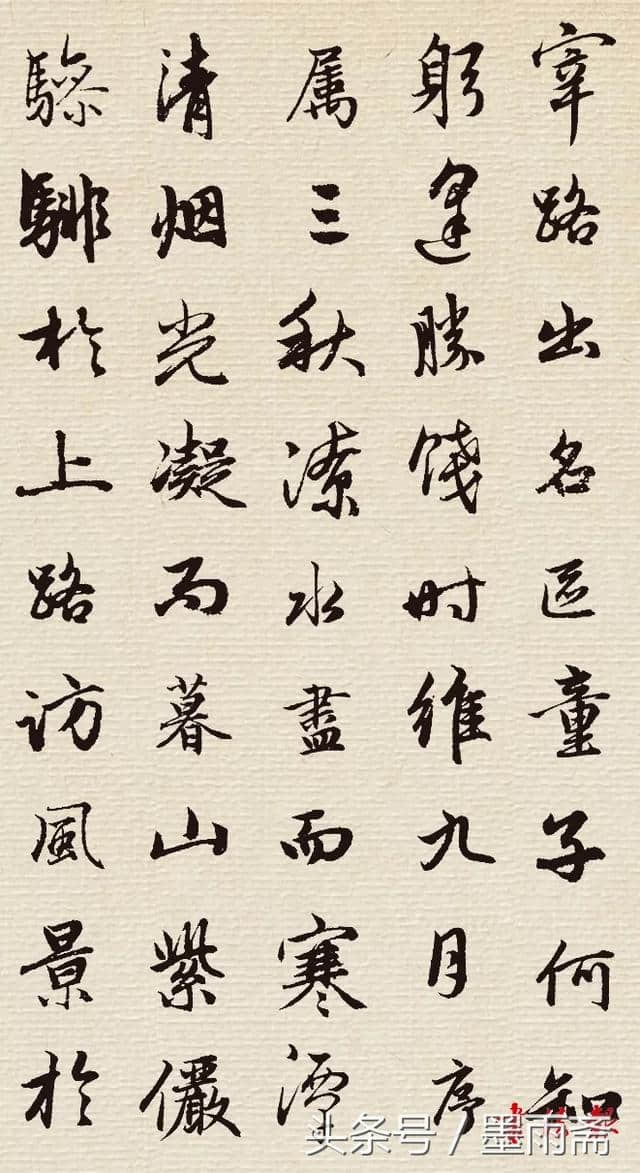 宰路出名区童子何知
躬逢勝餞时维九月序
属三秋潦水盡而寒潭
清烟光凝而暮山紫儼
驂騑於上路访風景於
头条号/墨雨斋